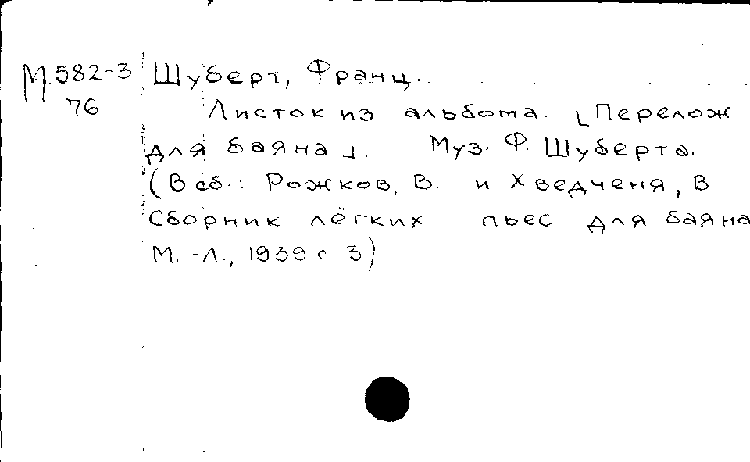 М 582-3 Шуберт, Франц.
76 Листок из альбома. [Перелож
для баяна]. Муз. Ф. Шуберта.
(В сб.: Рожков, В. и Хведченя, В
Сборник лёгких пьес для баяна
М.-Л., 1939 с 3)